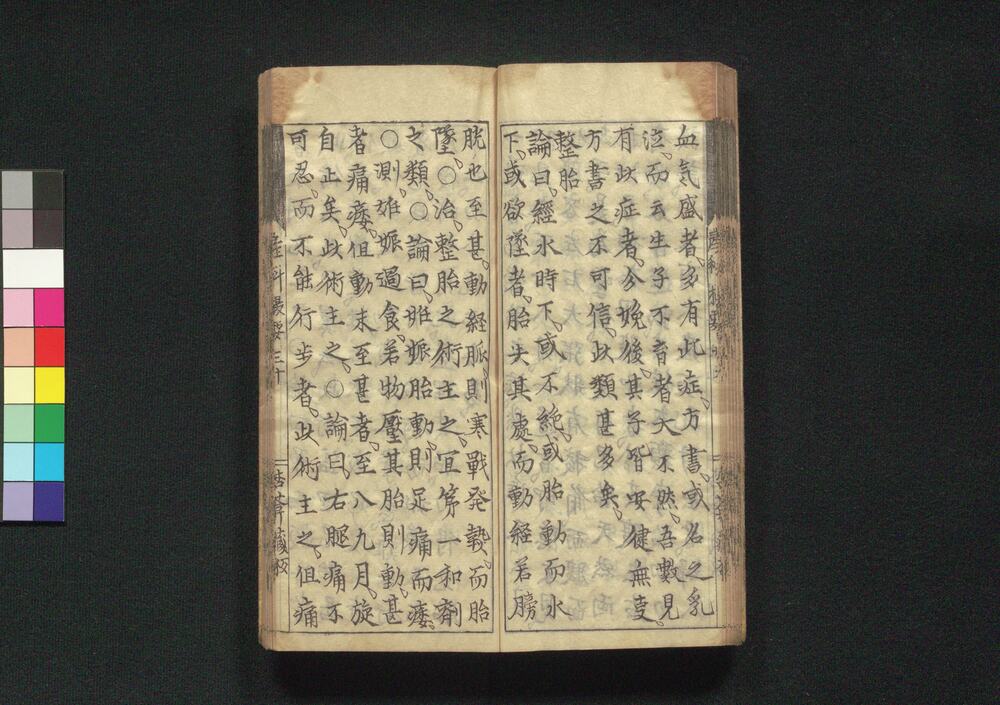 血気盛者多有此症方書或名之乳
泣而云生子不育者大不然吾數見
有此症者今娩後其子皆安健無妄
方書之不可信此類甚多矣
整胎
論曰經水時下或不絶或胎動而水
下或欲墜者胎失其處而動経若膀
胱也至甚動経脈則寒戰発熱而胎
墜○治整胎之術主之宜第一和劑
之類○論曰姙娠胎動則足痛而痿
○測姙娠過食若物壓其胎則動甚
者痛痿但動未至甚者至八九月旋
自止矣此術主之○論曰右腿痛不
可忍而不能行步者此術主之但痛
産科最要 三十
杏葊藏板